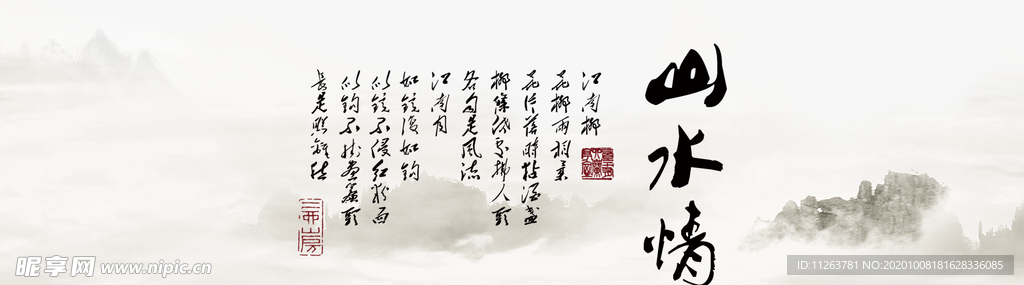 山水情
江南柳
花柳兩相柔
花片落時粘酒盞
柳條低處拂人頭
各自是風流
江南月
如鏡復如鉤
似鏡不侵紅粉面
似鉤不掛畫簾頭
長是照離愁
昵享网 www.nipic.cn
ID:11263781 NO:20201008181628336085